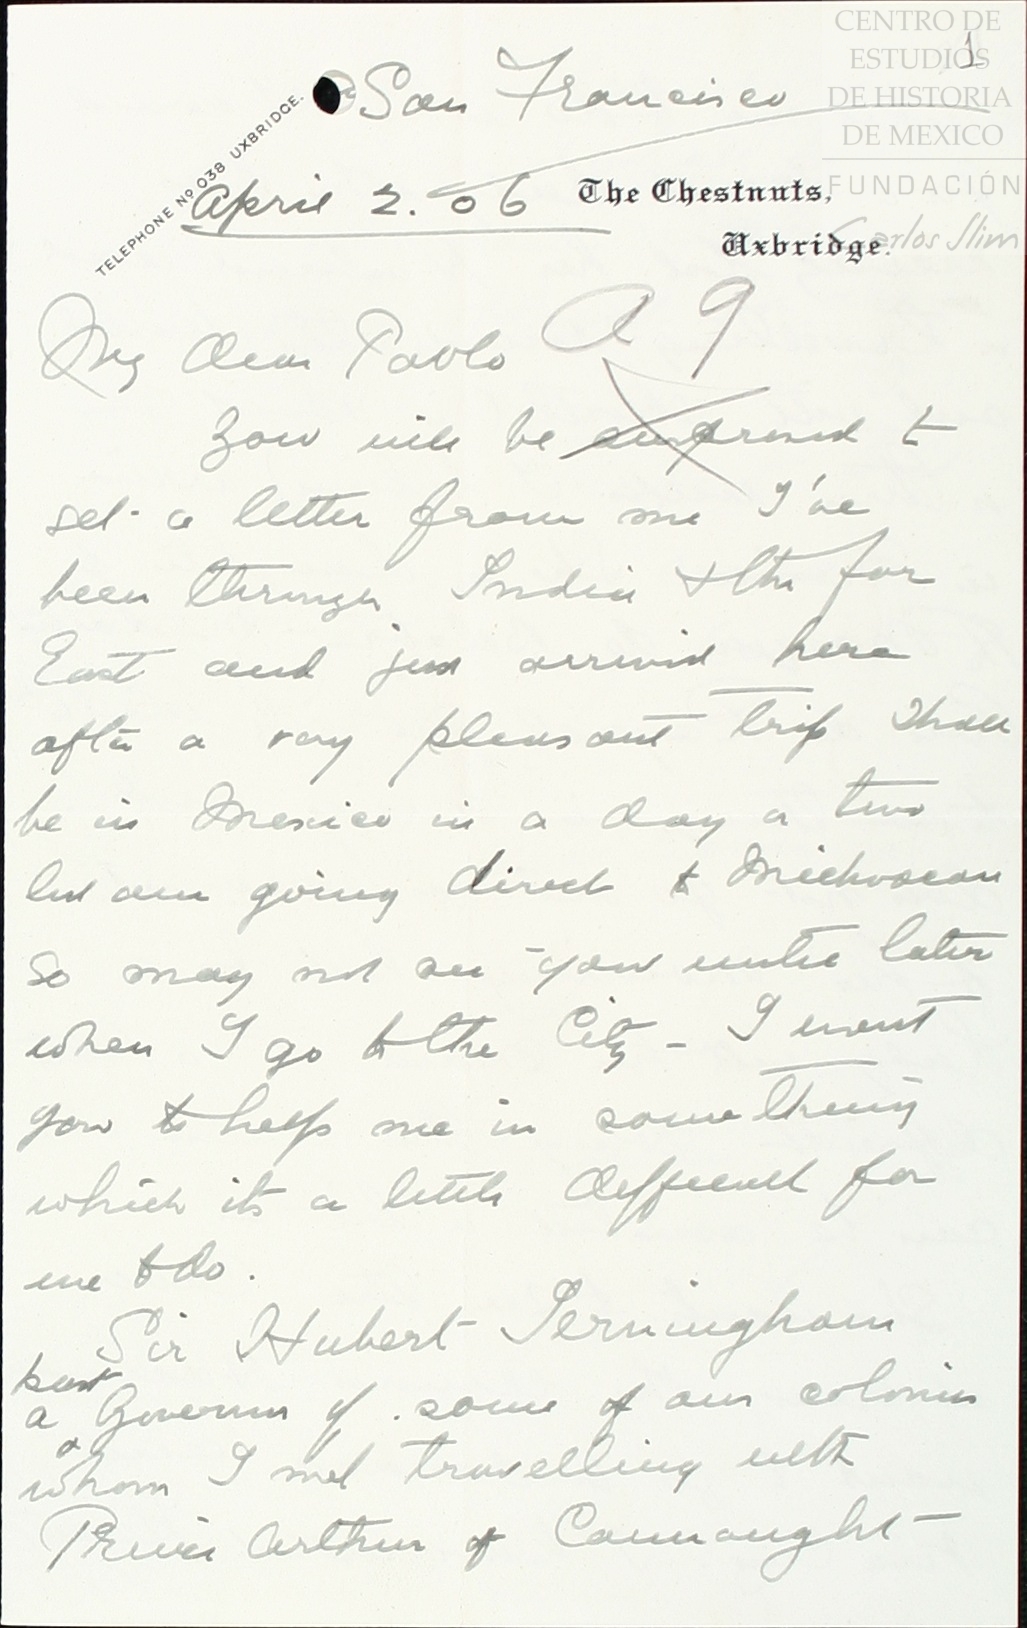 CENTRO DE
ESTUDIOS
DE HISTORIA
DE MEXICO
FUNDACIÓN
Carlos Slim
1
San Francisco
TELEPHONE Nº 038 UXBRIDGE.
April 2. 06
The Chestnuts,
Uxbridge.
My dear Pablo
A 9
You will be surprised to
get a letter from me I've
been through India & the far
East and just arrived here
after a very pleasant trip Shall
be in Mexico in a day or two
but am going direct to Michoacan
so may not see you until later
when I go to the City - I want
you to help me in something
which its a little difficult for
me to do.
Sir Hubert Jerningham
past
a Governor of some of our colonies
&
whom I met travelling with
Prince Arthur of Connaught -